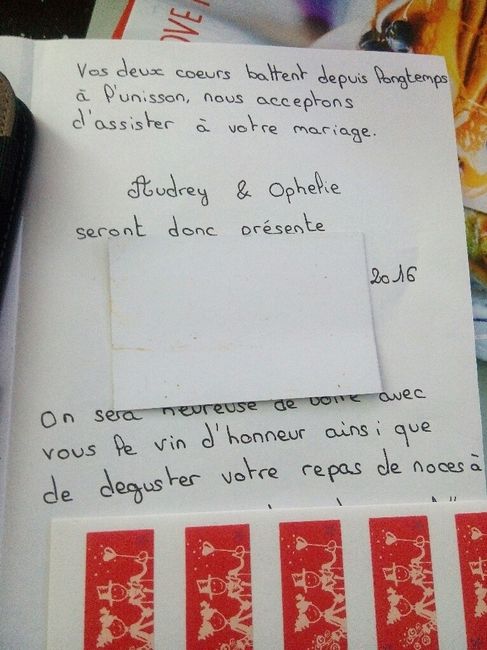 OVE
Vos deux coeurs battent depuis longtemps
à l'unisson, nous acceptons
d'assister à votre mariage.
Audrey & Ophelie
seront donc présente
2016
On sera heureuse de boire avec
vous le vin d'honneur ainsi que
de deguster votre repas de noces à